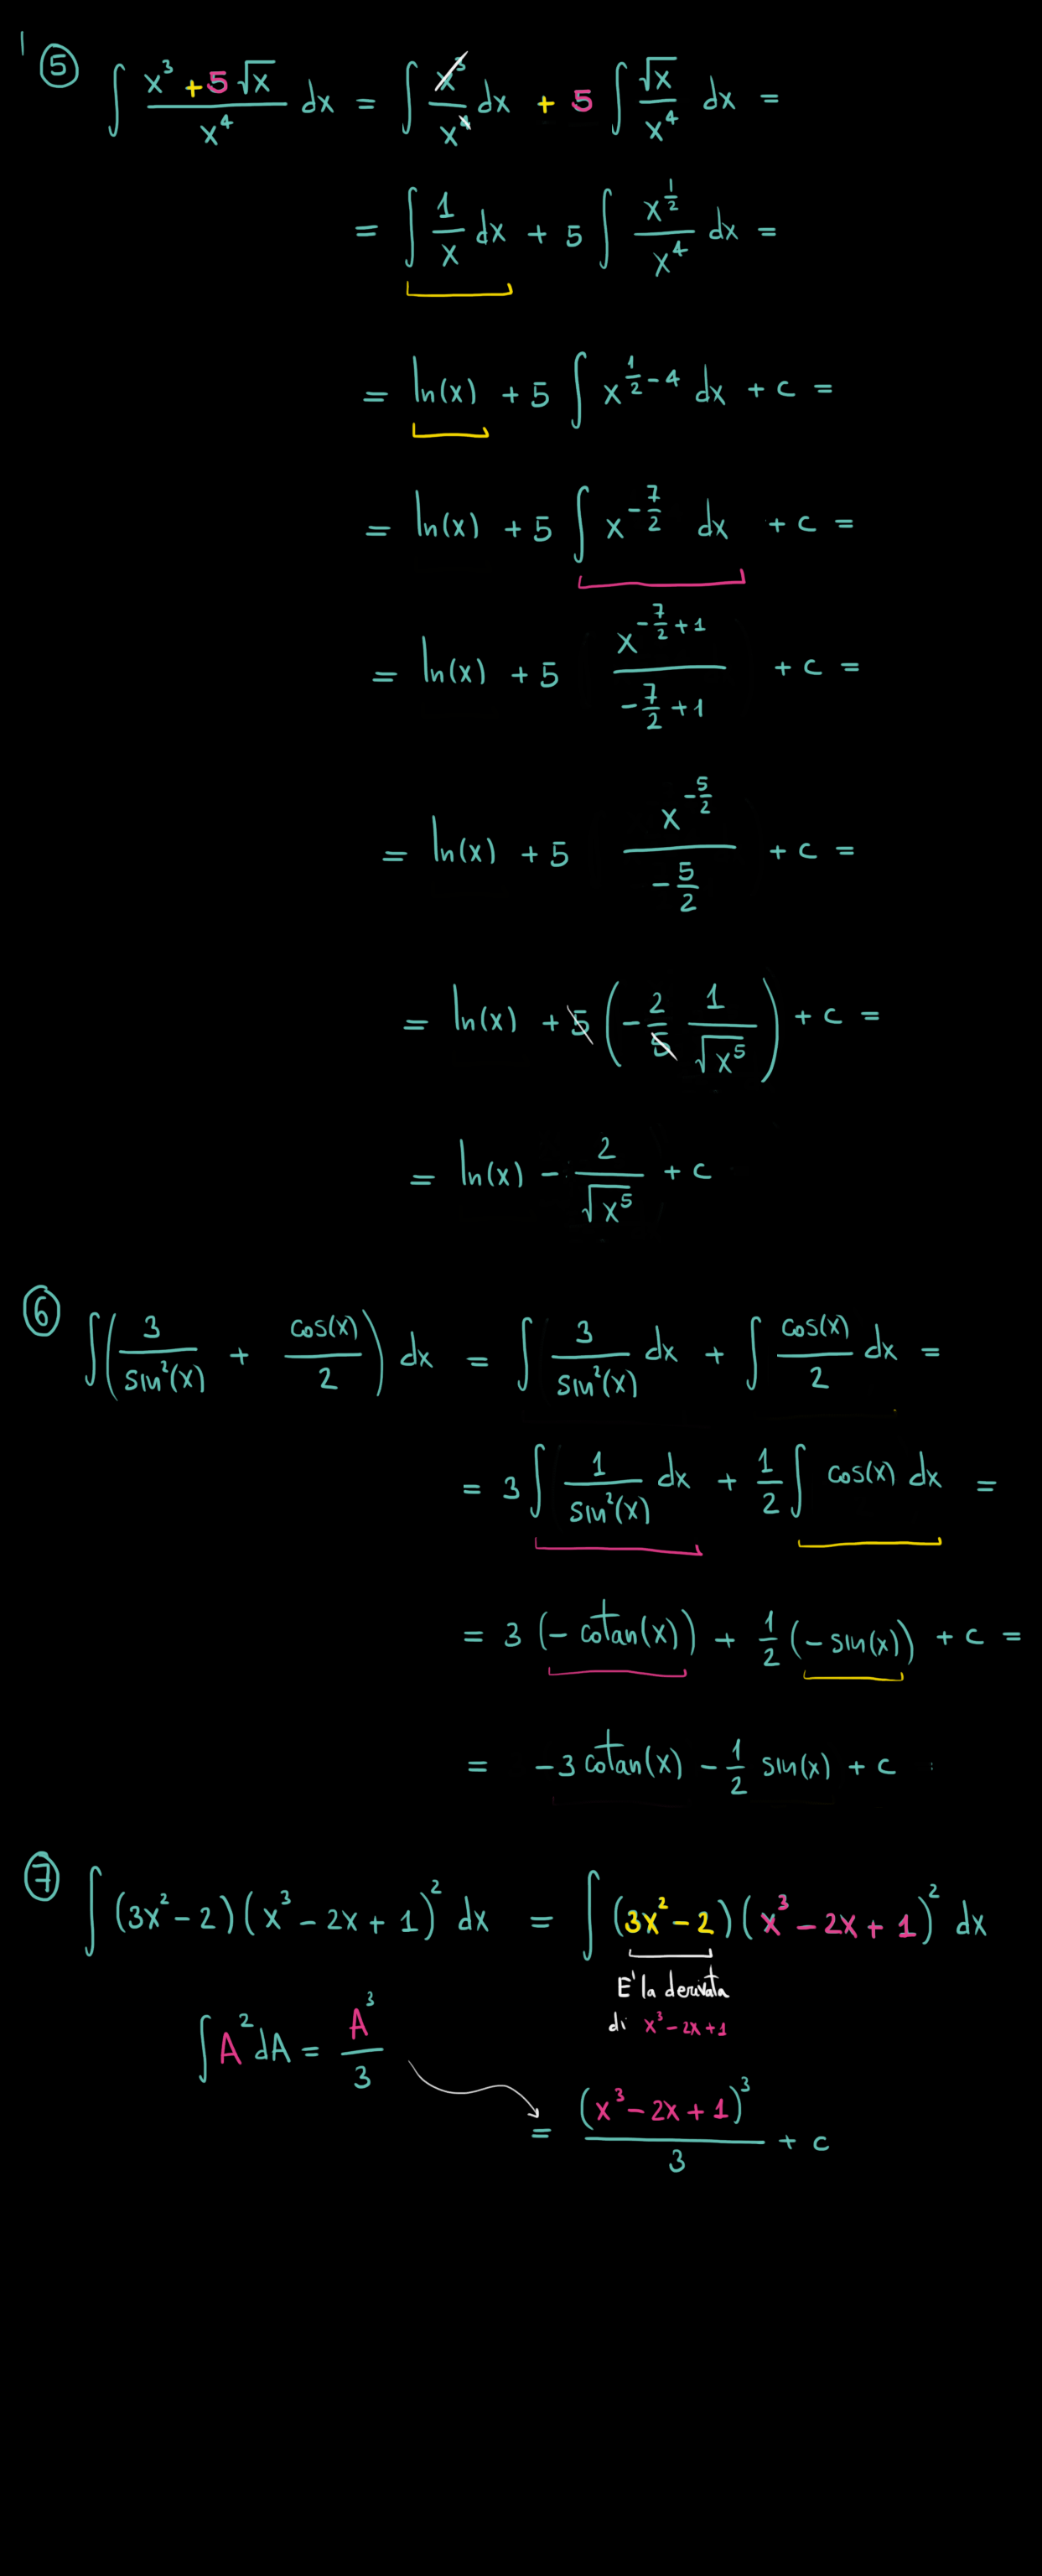 ⑤ ∫ (x³ + 5√x)/x⁴ dx = ∫ x³/x⁴ dx + 5 ∫ √x/x⁴ dx =
= ∫ 1/x dx + 5 ∫ x^(1/2)/x⁴ dx =
= ln(x) + 5 ∫ x^(1/2 - 4) dx + c =
= ln(x) + 5 ∫ x^(-7/2) dx + c =
= ln(x) + 5 x^(-7/2 + 1)/(-7/2 + 1) + c =
= ln(x) + 5 x^(-5/2)/(-5/2) + c =
= ln(x) + 5 (-2/5 1/√x⁵) + c =
= ln(x) - 2/√x⁵ + c
⑥ ∫ (3/sin²(x) + cos(x)/2) dx = ∫ 3/sin²(x) dx + ∫ cos(x)/2 dx =
= 3 ∫ 1/sin²(x) dx + 1/2 ∫ cos(x) dx =
= 3 (- cotan(x)) + 1/2 (- sin(x)) + c =
= -3 cotan(x) - 1/2 sin(x) + c
⑦ ∫ (3x² - 2)(x³ - 2x + 1)² dx = ∫ (3x² - 2)(x³ - 2x + 1)² dx
E' la derivata
di x³ - 2x + 1
∫ A² dA = A³/3
= (x³ - 2x + 1)³/3 + c